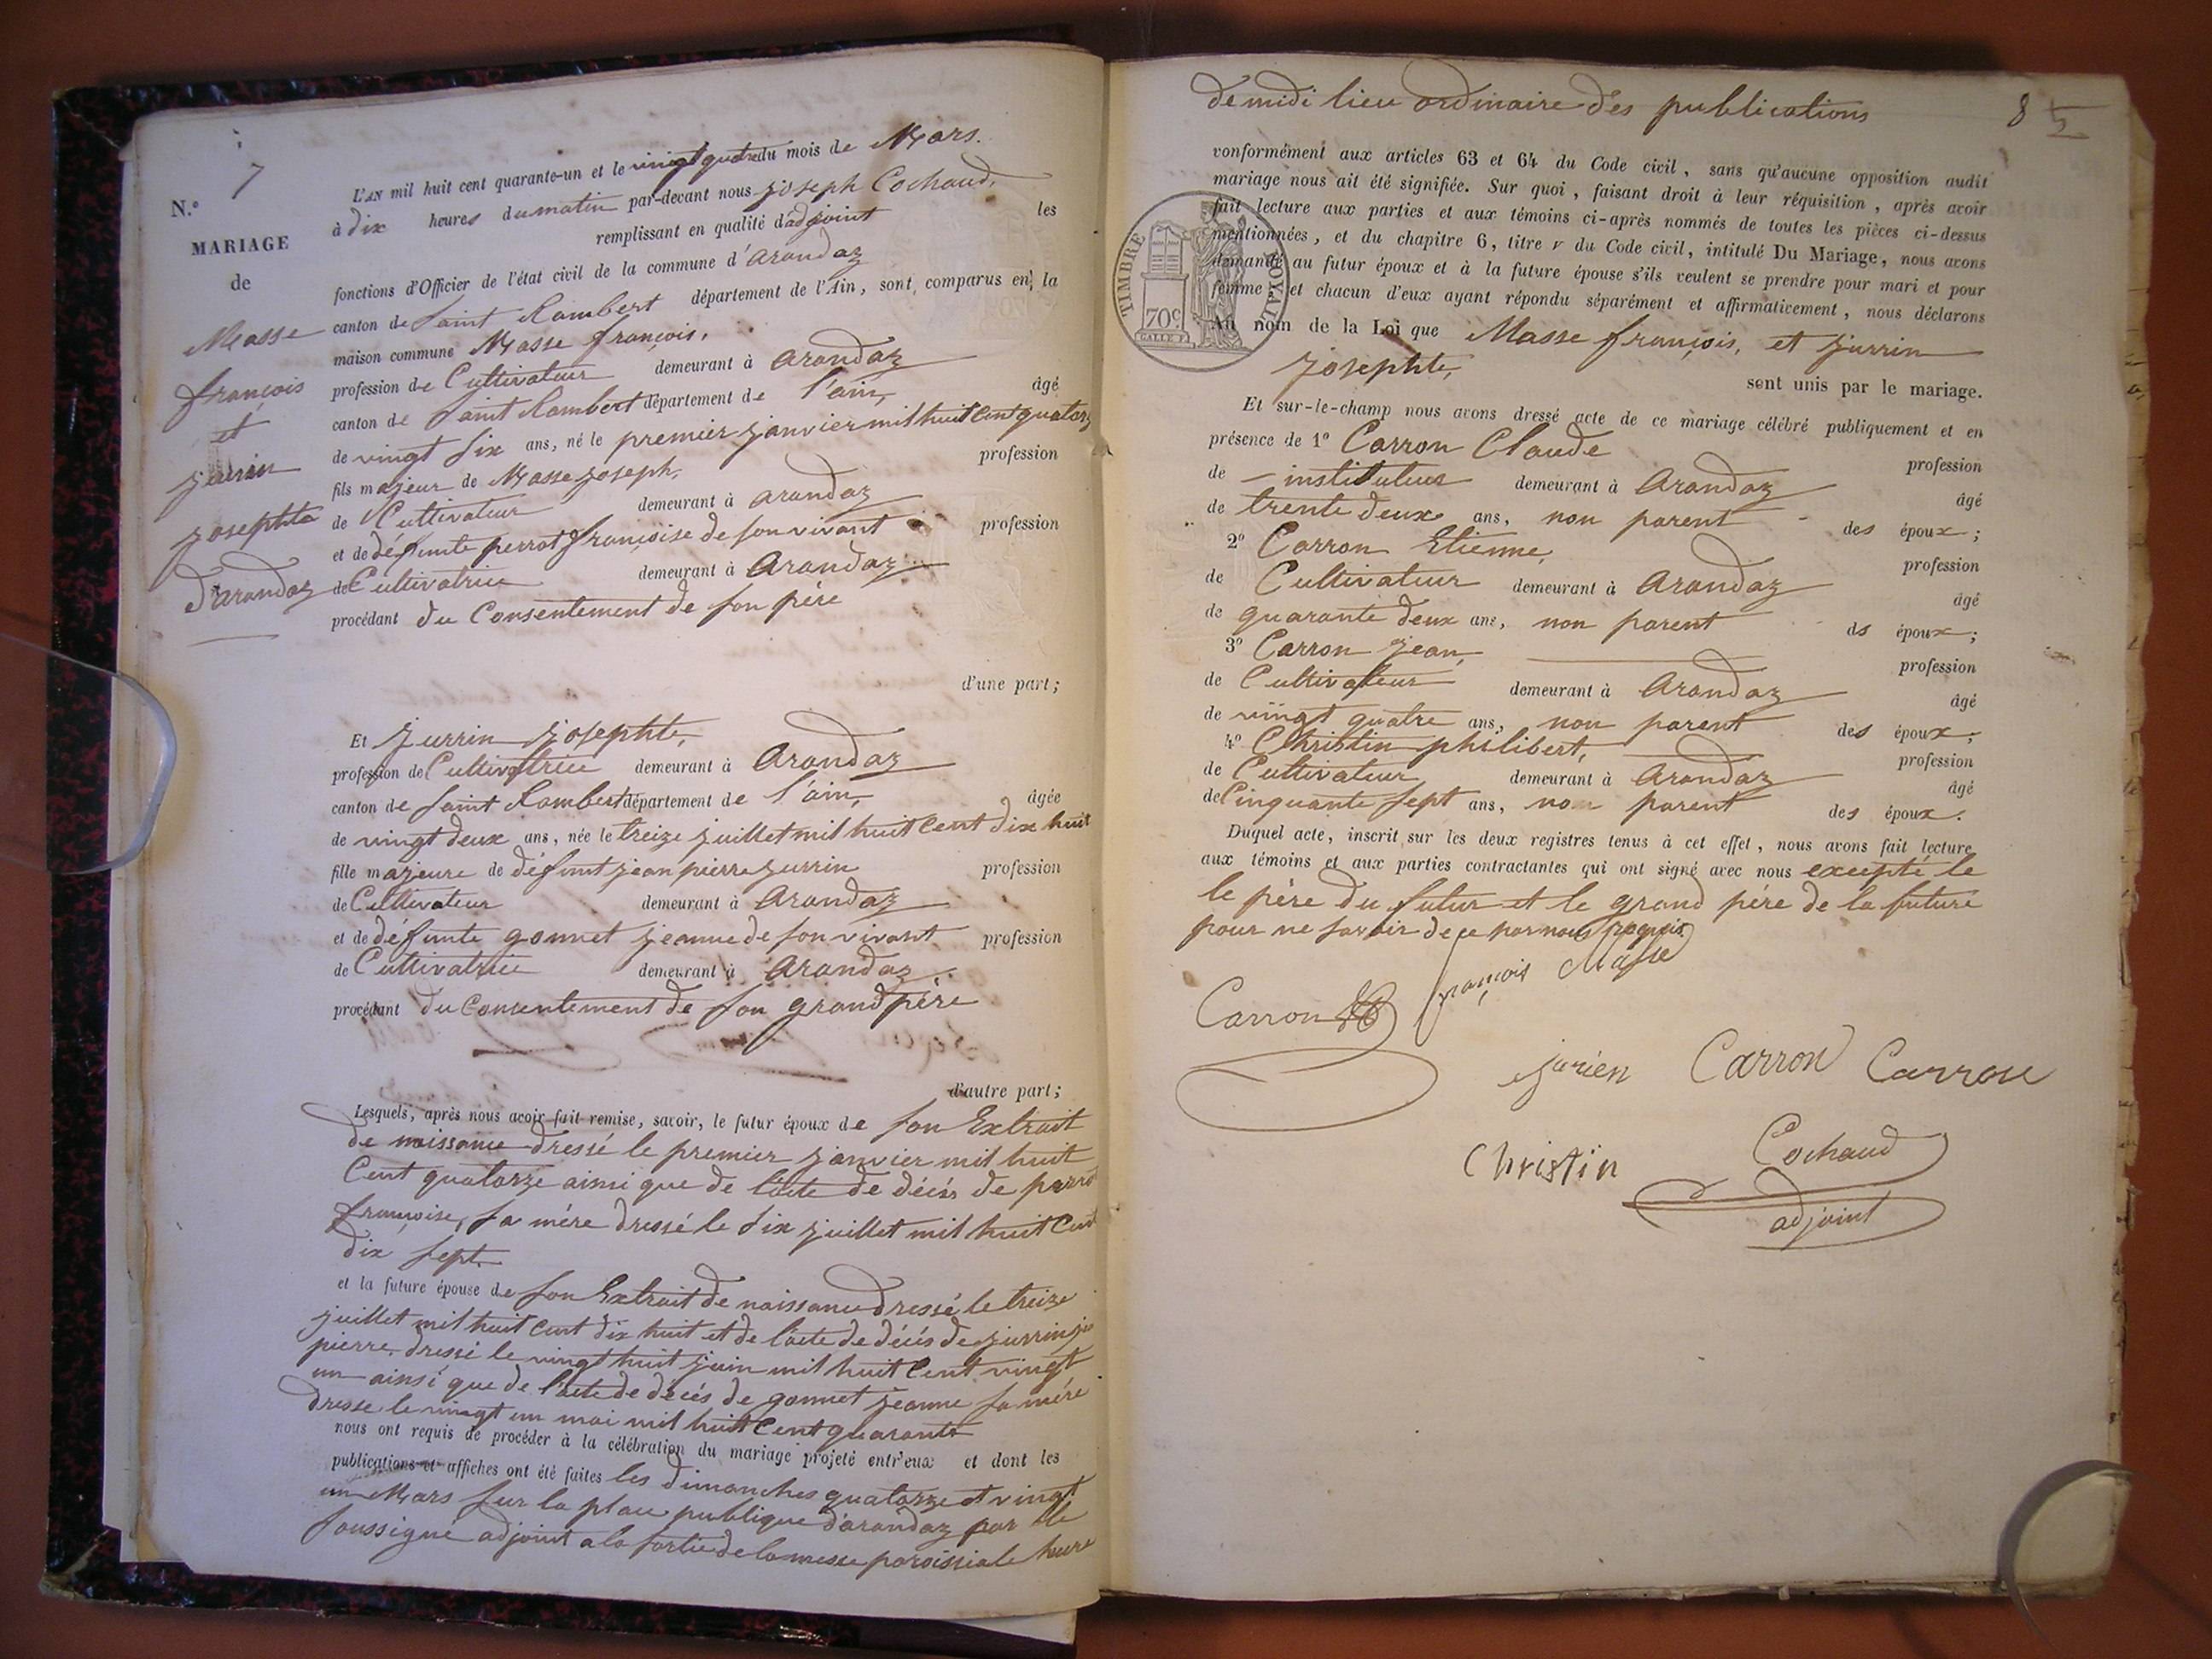 7
N.°
MARIAGE
de
Masse
françois
et
jurrin
josephte
d'arandaz
L'AN mil huit cent quarante-un et le vingt quatre du mois de Mars.
à dix heures du matin par-devant nous joseph Cochaud,
remplissant en qualité d'adjoint les
fonctions d'Officier de l'état civil de la commune d'arandaz
canton de Saint Rambert département de l'Ain, sont comparus en la
maison commune Masse françois,
profession de Cultivateur demeurant à arandaz
canton de Saint Rambert département de l'ain, âgé
de vingt six ans, né le premier janvier mil huit Cent quatorze
fils majeur de Masse joseph, profession
de Cultivateur demeurant à arandaz
et de défunte perrot françoise de son vivant profession
de Cultivatrice demeurant à Arandaz
procédant du Consentement de son père
d'une part;
Et jurrin josephte,
profession de Cultivatrice demeurant à Arandaz
canton de Saint Rambert département de l'ain, âgée
de vingt deux ans, née le treize juillet mil huit Cent dix huit
fille majeure de défunt jean pierre jurrin profession
de Cultivateur demeurant à Arandaz
et de défunte gonnet jeanne de son vivant profession
de Cultivatrice demeurant à Arandaz
procédant du Consentement de son grand père
d'autre part;
Lesquels, après nous avoir fait remise, savoir, le futur époux de son Extrait
de naissance dressé le premier janvier mil huit
Cent quatorze ainsi que de l'acte de décès de perrot
françoise, sa mère dressé le dix juillet mil huit Cent
dix sept.
et la future épouse de son Extrait de naissance dressé le treize
juillet mil huit Cent dix huit et de l'acte de décés de jurrin jean
pierre, dressé le vingt huit juin mil huit Cent vingt
un ainsi que de l'acte de décés de gonnet jeanne sa mére
dressé le vingt un mai mil huit Cent quarante
nous ont requis de procéder à la célébration du mariage projeté entr'eux et dont les
publications et affiches ont été faites les dimanches quatorze et vingt
un Mars sur la place publique d'arandaz par le
soussigné adjoint a la sortie de la messe paroissiale heure
de midi lieu ordinaire des publications
8 5
conformément aux articles 63 et 64 du Code civil, sans qu'aucune opposition audit
mariage nous ait été signifiée. Sur quoi, faisant droit à leur réquisition, après avoir
fait lecture aux parties et aux témoins ci-après nommés de toutes les pièces ci-dessus
mentionnées, et du chapitre 6, titre V du Code civil, intitulé Du Mariage, nous avons
demandé au futur époux et à la future épouse s'ils veulent se prendre pour mari et pour
femme et chacun d'eux ayant répondu séparément et affirmativement, nous déclarons
Au nom de la Loi que Masse françois, et jurrin
josephte, sont unis par le mariage.
TIMBRE ROYAL
70c
Et sur-le-champ nous avons dressé acte de ce mariage célébré publiquement et en
présence de 1° Carron Claude profession
de instituteur demeurant à Arandaz âgé
de trente deux ans, non parent des époux;
2° Carron Etienne, profession
de Cultivateur demeurant à Arandaz âgé
de quarante deux ans, non parent ds époux;
3° Carron jean, profession
de Cultivateur demeurant à Arandaz âgé
de vingt quatre ans, non parent des époux;
4° Christin philibert, profession
de Cultivateur demeurant à Arandaz âgé
de Cinquante sept ans, non parent des époux.
Duquel acte, inscrit sur les deux registres tenus à cet effet, nous avons fait lecture
aux témoins et aux parties contractantes qui ont signé avec nous excepté le
le père du futur et le grand père de la future
pour ne savoir de ce par nous requis
françois Masse
Carron
jurien Carron Carron
Christin Cochaud
adjoint